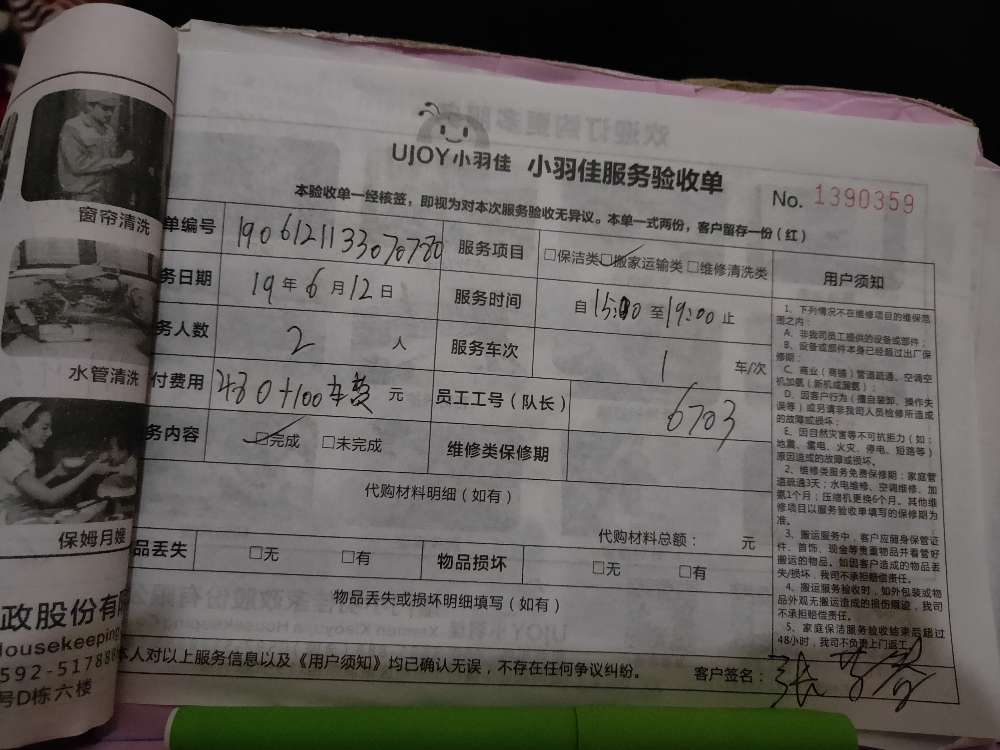 窗帘清洗
水管清洗
保姆月嫂
政股份有
Housekeeping
592-517888
号D栋六楼
UJOY小羽佳 小羽佳服务验收单
No. 1390359
本验收单一经核签，即视为对本次服务验收无异议。本单一式两份，客户留存一份（红）
单编号 190612113307078 服务项目 □保洁类 □搬家运输类 □维修清洗类
务日期 19年6月12日 服务时间 自15:00至19:00止
务人数 2 人 服务车次 1 车/次
付费用 480+100车费 元 员工工号（队长） 6703
务内容 □完成 □未完成 维修类保修期
代购材料明细（如有）
代购材料总额： 元
品丢失 □无 □有 物品损坏 □无 □有
物品丢失或损坏明细填写（如有）
本人对以上服务信息以及《用户须知》均已确认无误，不存在任何争议纠纷。
客户签名： 张
用户须知
1、下列情况不在维修项目的维保范
围之内：
A、非我司员工提供的设备或部件；
B、设备或部件本身已经超过出厂保
修期；
C、商业（商铺）管道疏通、空调空
机加氨（新机或漏氨）；
D、因客户行为（擅自装卸、操作失
误等）或另请非我司人员检修所造成
的故障或损坏；
E、因自然灾害等不可抗拒力（如：
地震、雷电、火灾、停电、短路等）
原因造成的故障或损坏。
2、维修类服务免费保修期：家庭管
道疏通3天；水电维修、空调维修、加
氨1个月；压缩机更换6个月。其他维
修项目以服务验收单填写的保修期为
准。
3、搬运服务中，客户应随身保管证
件、首饰、现金等贵重物品并看管好
搬运的物品。如因客户造成的物品丢
失/损坏，我司不承担赔偿责任。
4、搬运服务验收时，如外包装或物
品外观无搬运造成的损伤痕迹，我司
不承担赔偿责任。
5、家庭保洁服务验收结束后超过
48小时，我司不负责上门返工。